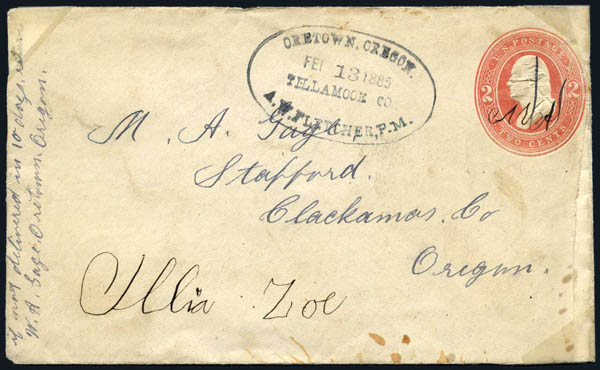 ORETOWN, OREGON.
FEB 13 1885
TELLAMOOK CO.
A. W. FLETCHER, P.M.
U.S. POSTAGE
2 2
TWO CENTS
M. A. Gage,
Stafford.
Clackamas. Co
Oregon.
Zoe
if not delivered in 10 days, return
W. A. Gage. Oretown. Oregon.